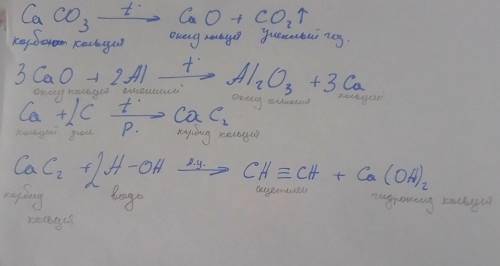 CaCO₃ —t→ CaO + CO₂↑
карбонат кальция оксид кальция угольный газ.
3CaO + 2Al —t→ Al₂O₃ + 3Ca
оксид кальция алюминий оксид алюминия кальций
Ca + 2C —t, P.→ CaC₂
кальций карбид кальция
CaC₂ + 2H-OH → CH≡CH + Ca(OH)₂
карбид вода ацетилен гидроксид кальция
кальция